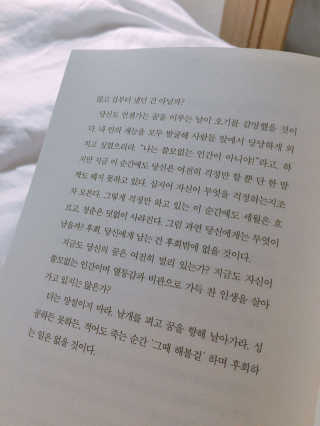 않고 겁부터 냈던 건 아닐까?
당신도 언젠가는 꿈을 이루는 날이 오기를 갈망했을 것이
다. 내 안의 재능을 모두 발굴해 사람들 앞에서 당당하게 외
치고 싶었으리라. “나는 쓸모없는 인간이 아니야!”라고. 하
지만 지금 이 순간에도 당신은 여전히 걱정만 할 뿐 단 한 발
짝도 떼지 못하고 있다. 심지어 자신이 무엇을 걱정하는지조
차 모른다. 그렇게 걱정만 하고 있는 이 순간에도 세월은 흐
르고, 청춘은 덧없이 사라진다. 그럼 과연 당신에게는 무엇이
남을까? 후회, 당신에게 남는 건 후회밖에 없을 것이다.
지금도 당신의 꿈은 여전히 멀리 있는가? 지금도 자신이
쓸모없는 인간이며 열등감과 비관으로 가득 찬 인생을 살아
가고 있지는 않은가?
더는 망설이지 마라. 날개를 펴고 꿈을 향해 날아가라. 성
공하든 못하든, 적어도 죽는 순간 ‘그때 해볼걸’ 하며 후회하
는 일은 없을 것이다.